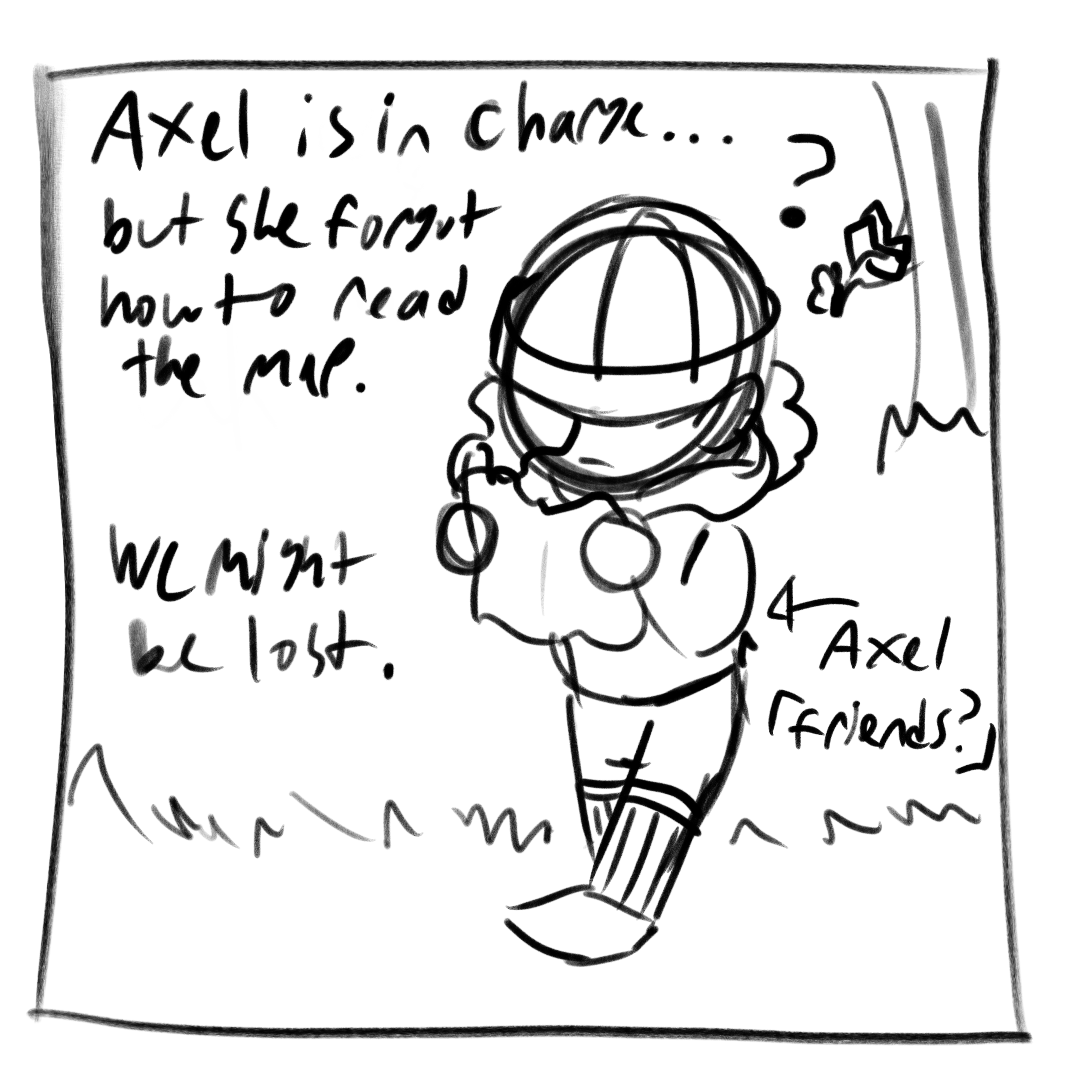 Axel is in charge...
but she forgot
how to read
the map.
?
We might
be lost.
Axel
「friends?」